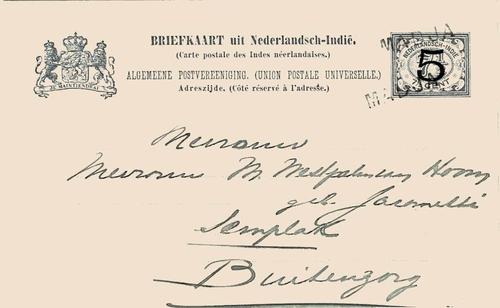 BRIEFKAART uit Nederlandsch-Indië.
(Carte postale des Indes néerlandaises.)
ALGEMEENE POSTVEREENIGING. (UNION POSTALE UNIVERSELLE.)
Adreszijde. (Côté réservé à l'adresse.)
JE MAINTIENDRAI
NEDERLANDSCH-INDIË
5
CENT
Mevrouw
Mevrouw M. Westpalm van Hoorn
geb. Jacometti
Semplak
Buitenzorg